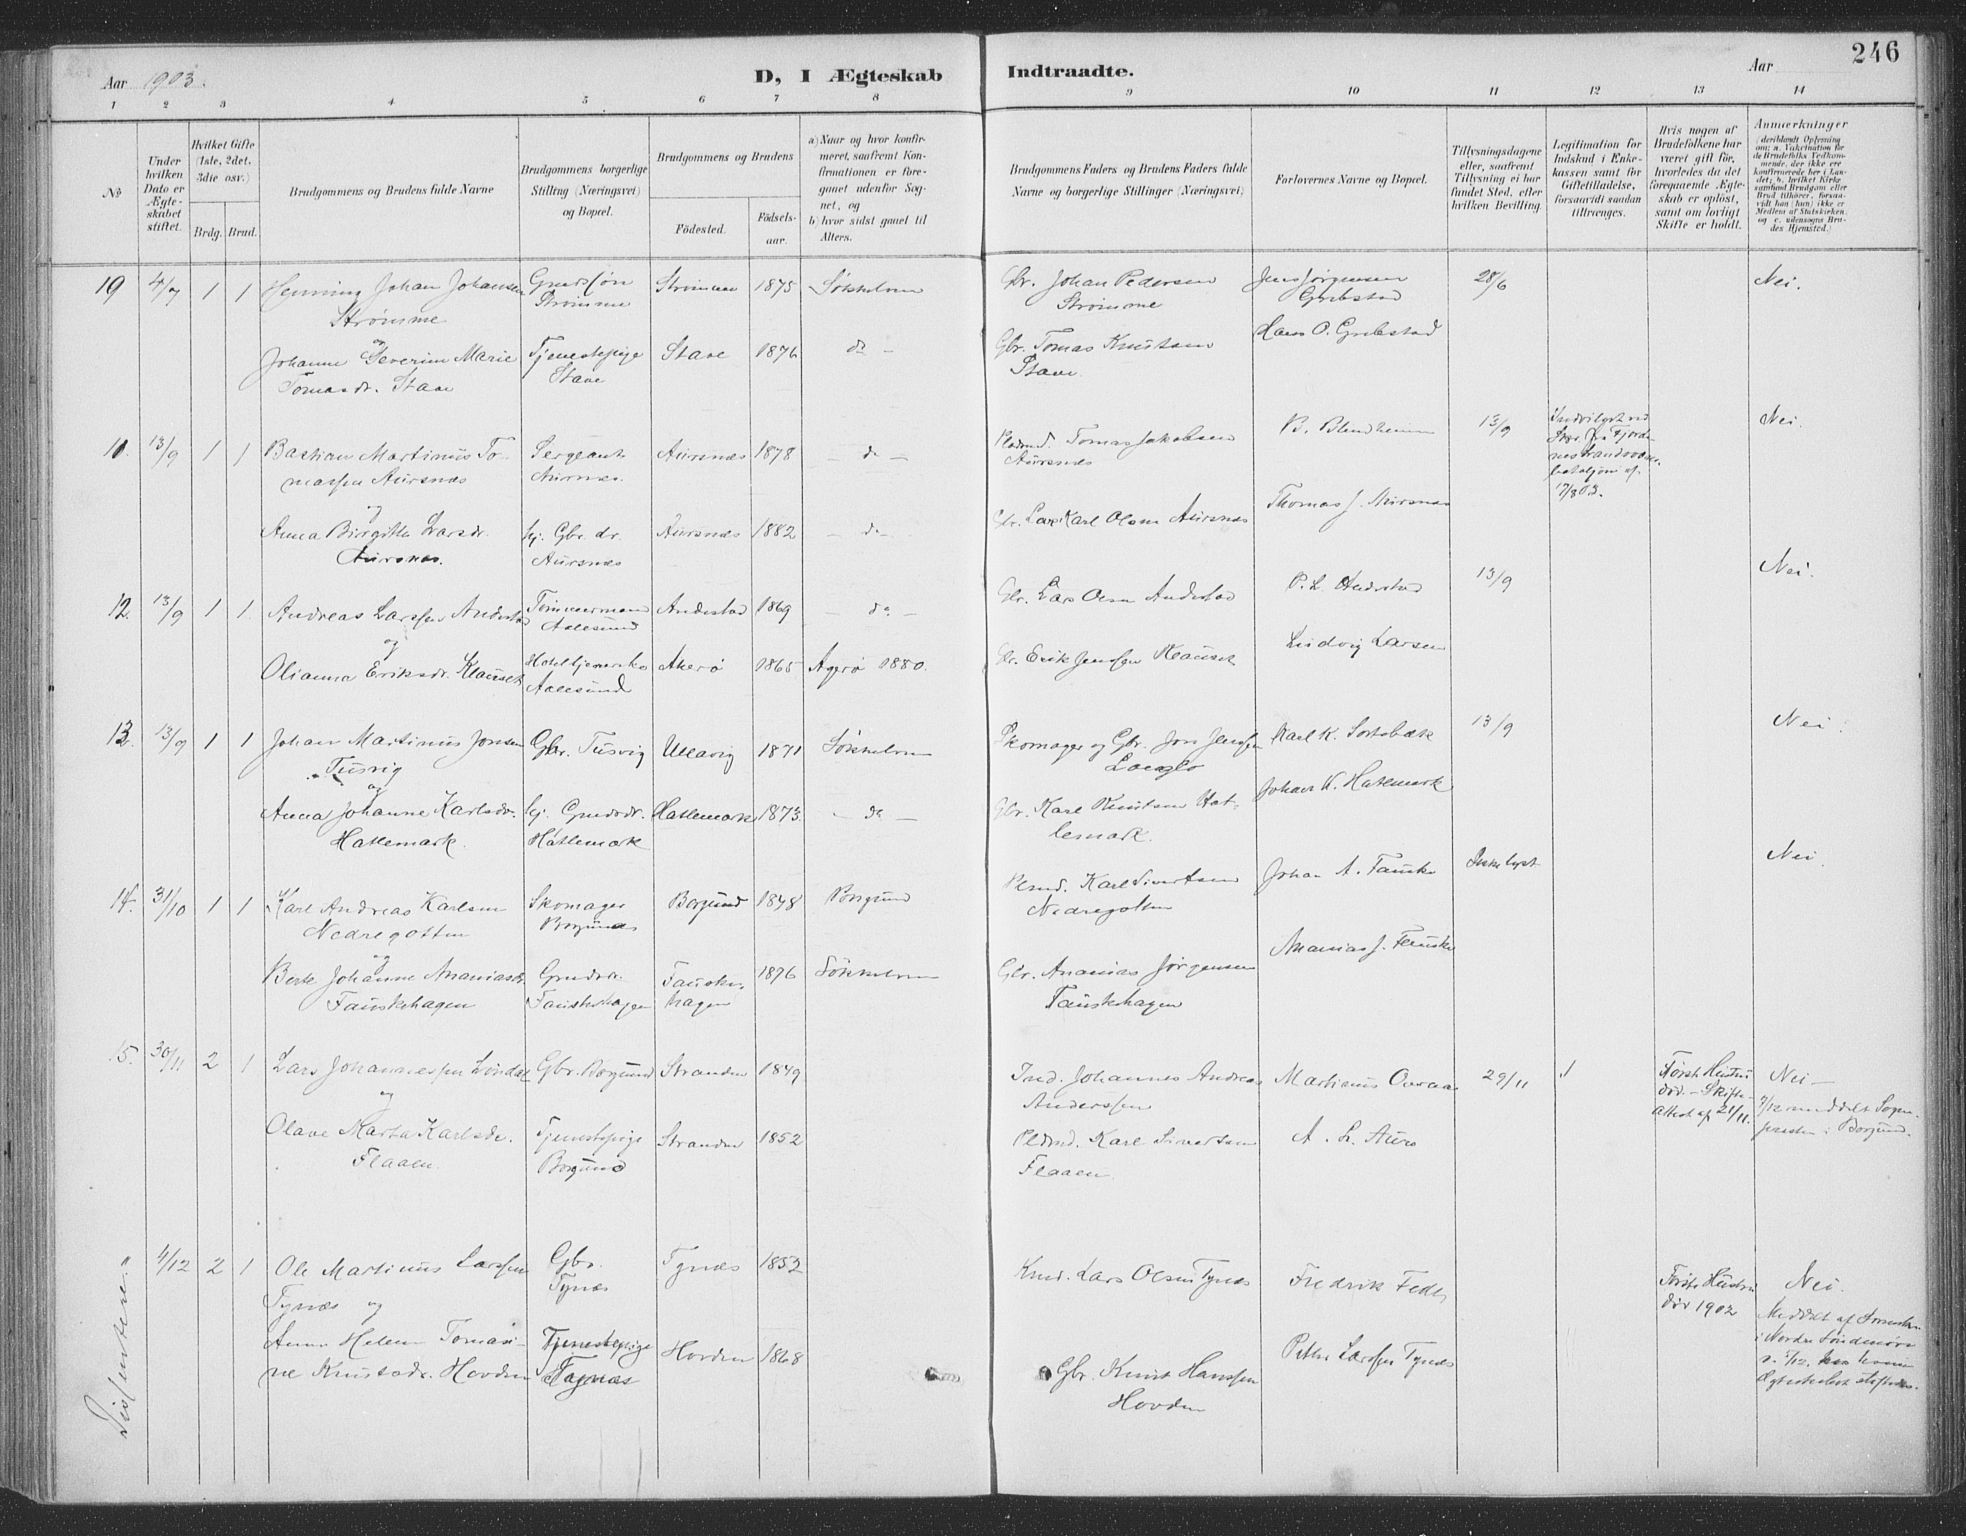 Aar 1903.
D, I Ægteskab
Indtraadte.
Aar
246
1 2 3 4 5 6 7 8 9 10 11 12 13 14
No
Under hvilken Dato er Ægteskabet stiftet.
Hvilket Gifte (1ste, 2det, 3die osv.)
Brdg. Brud.
Brudgommens og Brudens fulde Navne
Brudgommens borgerlige Stilling (Næringsvei) og Bopæl.
Brudgommens og Brudens
Födested.
Födselsaar.
a) Naar og hvor konfirmeret, saafremt Konfirmationen er foregaaet udenfor Sognet, og
b) hvor sidst gaaet til Alters.
Brudgommens Faders og Brudens Faders fulde Navne og borgerlige Stillinger (Næringsvei)
Forlovernes Navne og Bopæl.
Tillysningsdagene eller, saafremt Tillysning ei har fundet Sted, efter hvilken Bevilling.
Legitimation for Indskud i Enkekassen samt for Giftetilladelse, forsaavidt saadan tiltrænges.
Hvis nogen af Brudefolkene har været gift för, hvorledes da det foregaaende Ægteskab er oplöst, samt om lovligt Skifte er holdt.
Anmærkninger
19 4/7 1 1 Henning Johan Johansen Strømme
Strømme
Strømme 1875 Søkkelven
Gbr. Johan Pedersen Strømme
Jens Jørgensen Grebstad
28/6
Nei.
og
Johanne Severine Marie Tomasdr. Stave
Tjenestepige Stave
Stave 1876 do
Gbr. Tomas Knutsen Stave
Hans O. Grebstad
13/9 1 1 Bastian Martinus Tomassen Aursnes
Sergeant Aursnes.
Aursnes 1878 do
Tomas Jakobsen Aursnes
B. Blindheim
13/9
17/8 03.
Nei.
og
Anna Birgitte Larsdr. Aursnes.
hj. Gbr. dr. Aursnes
Aursnes 1882 do
Karl Olsen Aursnes
Thomas J. Aursnes
12. 13/9 1 1 Andreas Larssen Andestad
Tømmermand Aalesund
Andestad 1869 do
Gbr. Lars Olsen Andestad
P. L. Andestad
13/9
Nei.
og
Olianna Eriksdr. Klauset
Aalesund
Akerø 1865 Agerø 1880.
Gbr. Erik Jensen Klauset
Ludvig Larsen
13. 13/9 1 1 Johan Martinus Jonsen Tusvig
Gbr. Tusvig
Ullavig 1871 Søkkelven
Skomager og Gbr. Jon Jensen
Karl K.
13/9
Nei.
og
Anna Johanne Karlsdr. Hatlemark.
hj. Gmdsdr. Hatlemark
Hatlemark 1873. do
Gbr. Karl Knutsen Hatlemark.
Johan K. Hatlemark
14. 31/10 1 1 Karl Andreas Karlsen Nedregotten
Skomager Borgund
Borgund 1848 Borgund
Plsmd. Karl Sivertsen Nedregotten
Johan A. Fauske
Ikke lyst
Nei.
og
Berte Johanne Ananiasdr. Fauskehagen
Fauskehagen
Fauskehagen 1876 Søkkelven
Gbr. Ananias Jørgensen Fauskehagen
Ananias J. Fauske
15. 30/11 2 1 Lars Johannessen
Gbr. Borgund
Stranden 1849
Ind. Johannes Andreas Anderssen
Martinus Overaas
29/11
1
Første Hustru død. – Skifteattest af 21/11.
Nei –
7/12 meddelt Sognepresten i Borgund.
og
Olave Marta Karlsdr. Flaaen.
Tjenestepige Borgund
Stranden 1852
Plsmd. Karl Sivertsen Flaaen.
A. L. Aure
Dissentere. "
4/12 2 1 Ole Martinus Larssen Tynes
Gbr. Tynes
Tynes 1852
Lars Olsen Tynes
Fredrik
Første Hustru død 1902
Nei.
og
Anne Helene Tomasine Knutsdr. Hovden
Tjenestepige Tynes
Hovden 1868
Gbr. Knut Hanssen Hovden
Petter Larssen Tynes
Meddelt af
i Nordre Søndmøre